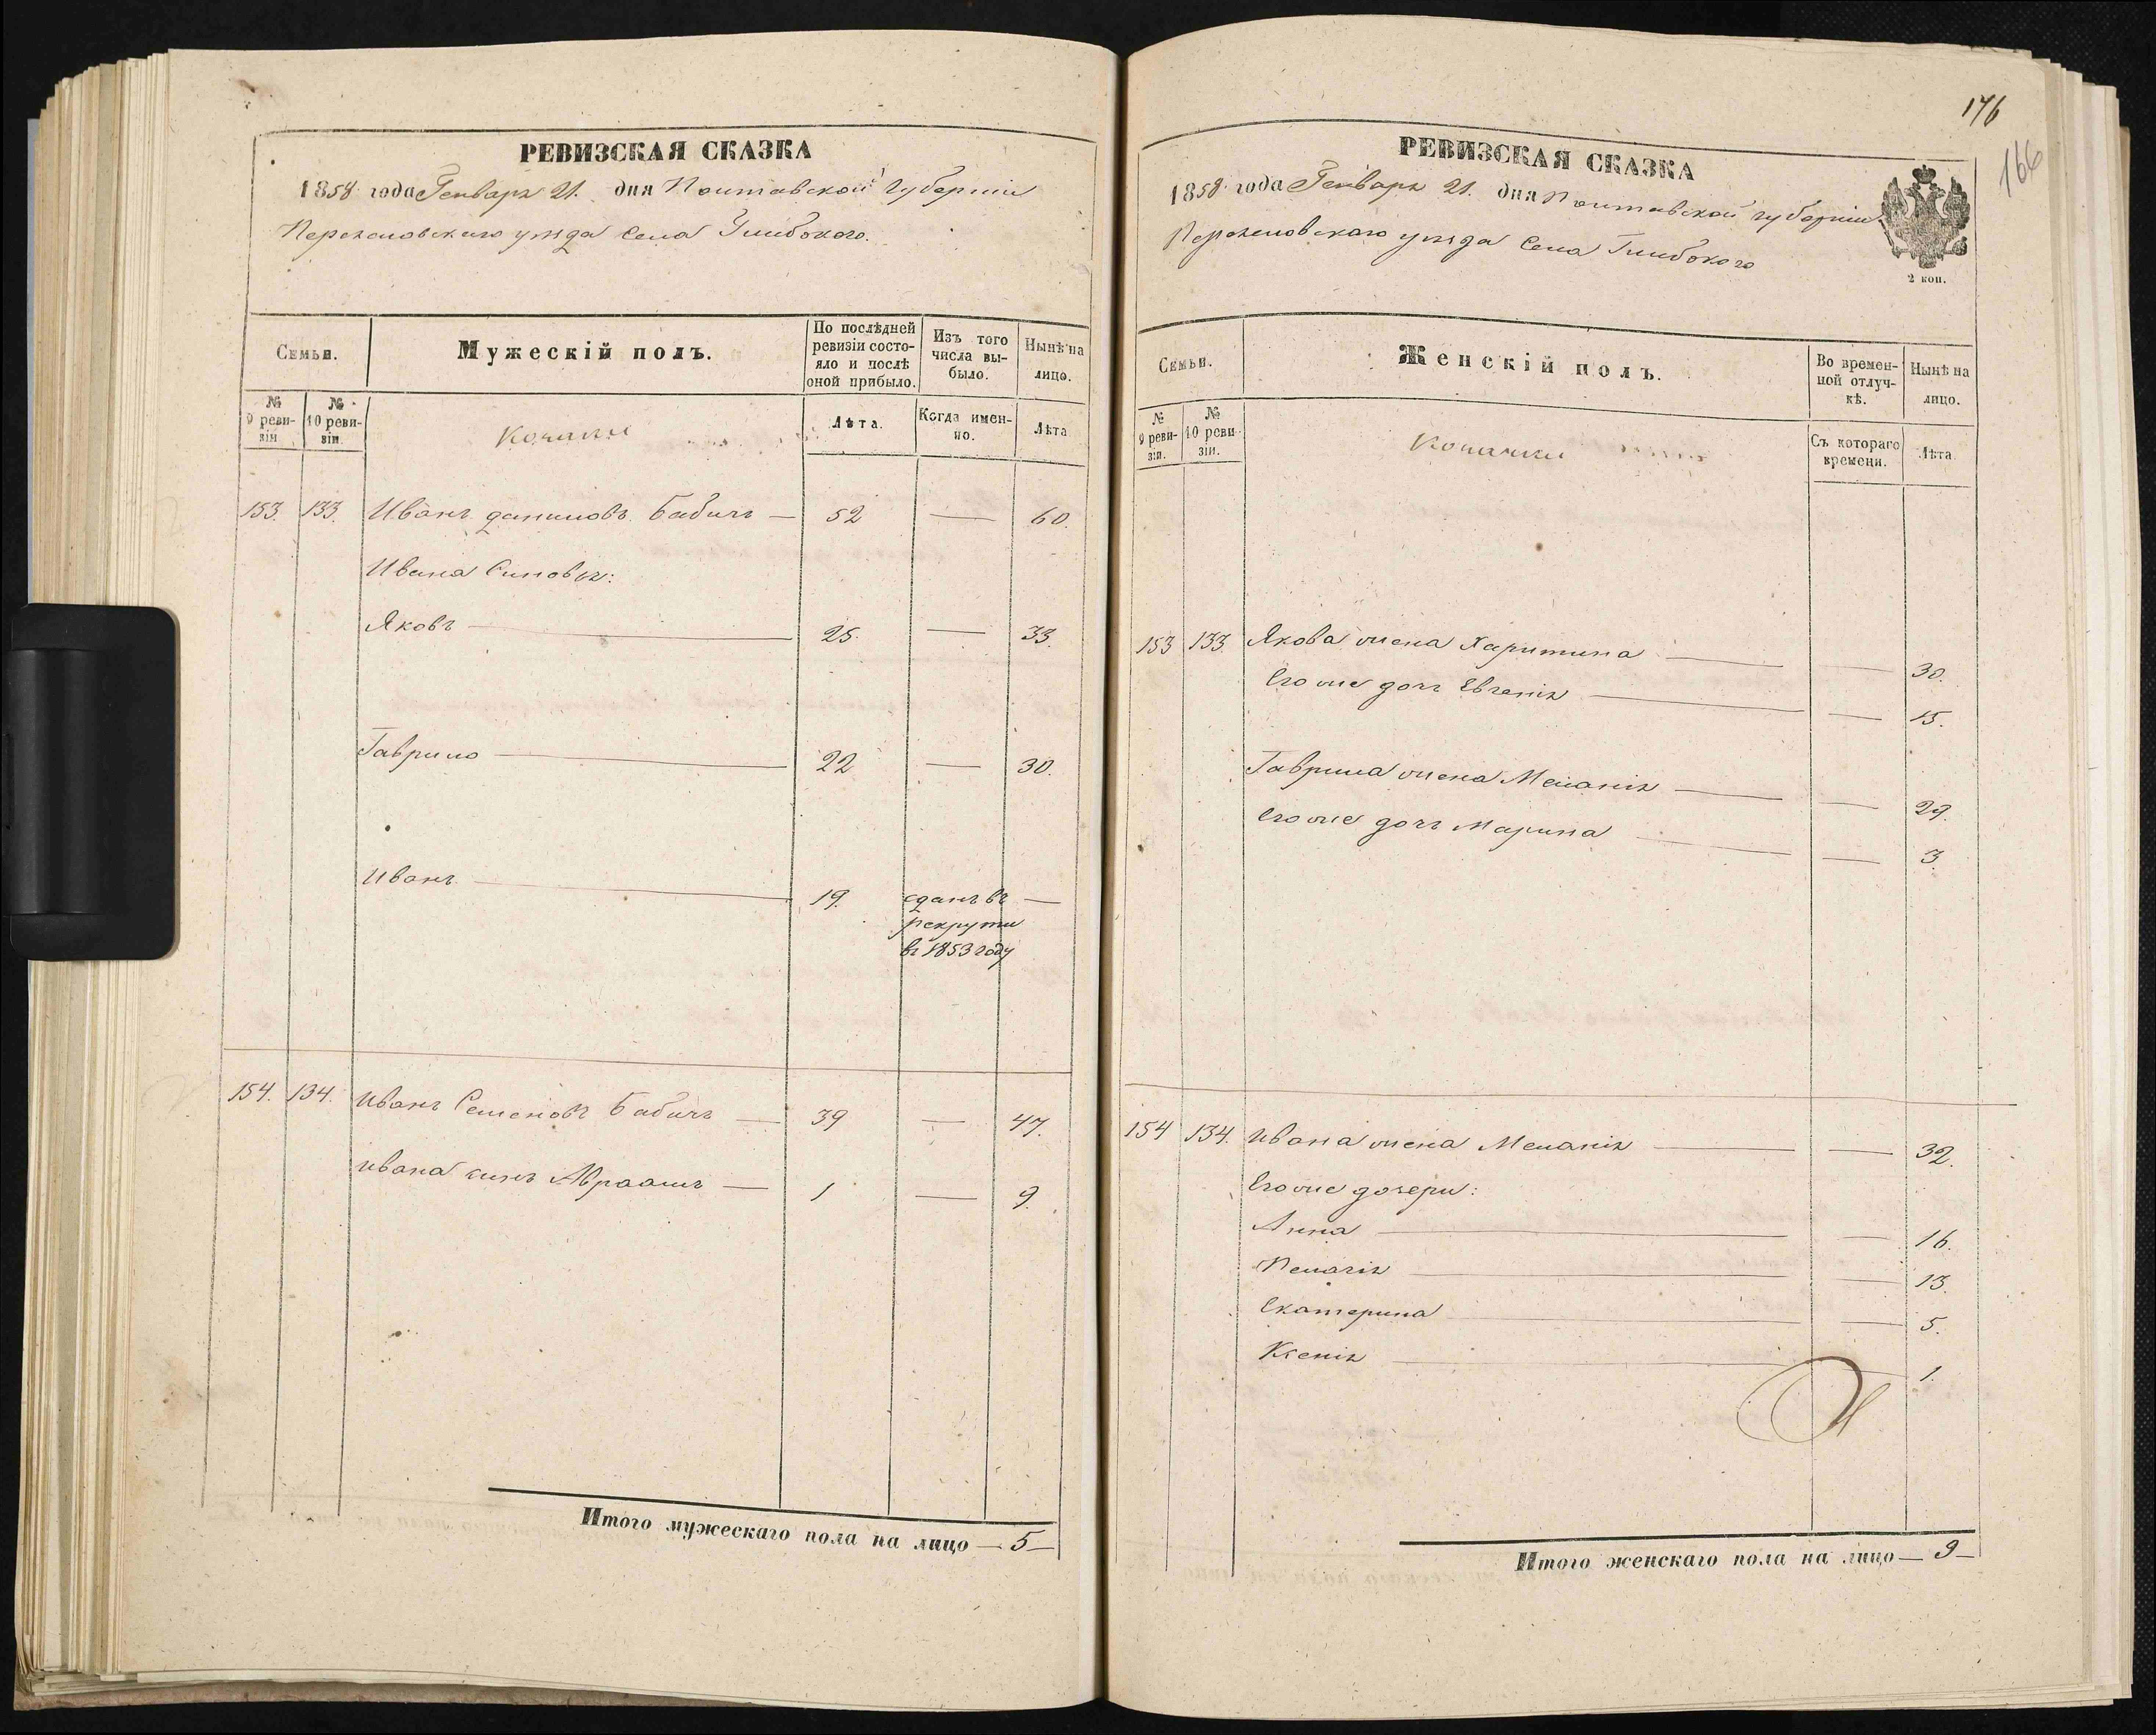 РЕВИЗСКАЯ СКАЗКА
1858 года Генваря 21. дня Полтавской Губерніи
Переяславскаго уезда Села Глибокого.
Семьи.
Мужескій полъ.
По послѣдней ревизіи состояло и послѣ оной прибыло.
Изъ того числа выбыло.
Нынѣ на лицо.
№ 9 ревизіи
№ 10 ревизіи
Козаки
Лѣта.
Когда именно.
Лѣта
153. 133. Иванъ Даниловъ Бабичъ — 52 — 60.
Ивана Синовья:
Яковъ — 25. — 33.
Гаврило — 22 — 30.
Иванъ — 19. сданъ въ —
рекруты
въ 1853 году
154. 134. Иванъ Семеновъ Бабичъ — 39 — 47.
Ивана синъ Авраамъ — 1 — 9.
Итого мужескаго пола на лицо — 5 —
176
166
РЕВИЗСКАЯ СКАЗКА
1858 года Генваря 21. дня Полтавской губерніи
Переяславскаго уезда Села Глибокого
2 коп.
Семьи.
Женскій полъ.
Во временной отлучкѣ.
Нынѣ на лицо.
№ 9 ревизіи.
№ 10 ревизіи.
Козачки
Съ котораго времени.
Лѣта.
153 133. Якова жена Харитина — — 30.
Его же дочь Евгенія — — 15.
Гаврила жена Меланія — — 29.
Его же дочь Марина — — 3
154 134. Ивана жена Меланія — — 32.
Его же дочери:
Анна — — 16.
Пелагія — — 13.
Екатерина — — 5.
Ксенія — — 1.
Итого женскаго пола на лицо — 9 —